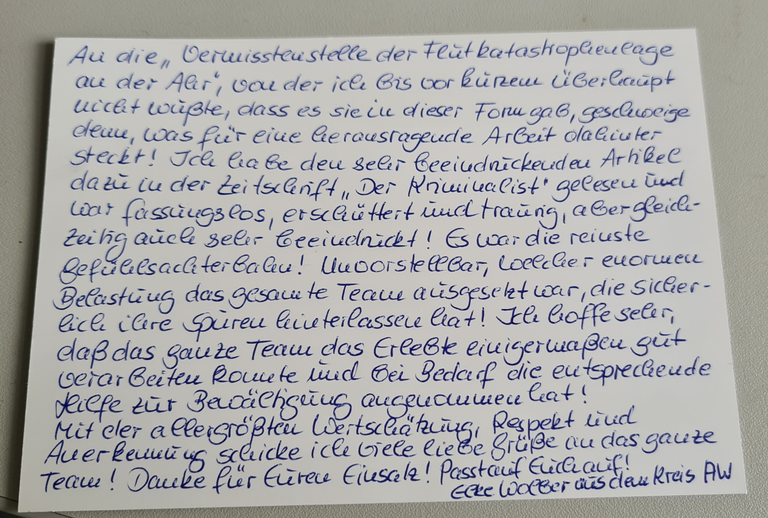 An die „Vermisstenstelle der Flutkatastrophenlage
an der Ahr", von der ich bis vor kurzem überhaupt
nicht wußte, dass es sie in dieser Form gab, geschweige
denn, was für eine herausragende Arbeit dahinter
steckt! Ich habe den sehr beeindruckenden Artikel
dazu in der Zeitschrift „Der Kriminalist" gelesen und
war fassungslos, erschüttert und traurig, aber gleich-
zeitig auch sehr beeindruckt! Es war die reinste
Gefühlsachterbahn! Unvorstellbar, welcher enormen
Belastung das gesamte Team ausgesetzt war, die sicher-
lich ihre Spuren hinterlassen hat! Ich hoffe sehr,
daß das ganze Team das Erlebte einigermaßen gut
verarbeiten konnte und bei Bedarf die entsprechende
Hilfe zur Bewältigung angenommen hat!
Mit der allergrößten Wertschätzung, Respekt und
Anerkennung schicke ich viele liebe Grüße an das ganze
Team! Danke für Euren Einsatz! Passt auf Euch auf!
aus dem Kreis AW